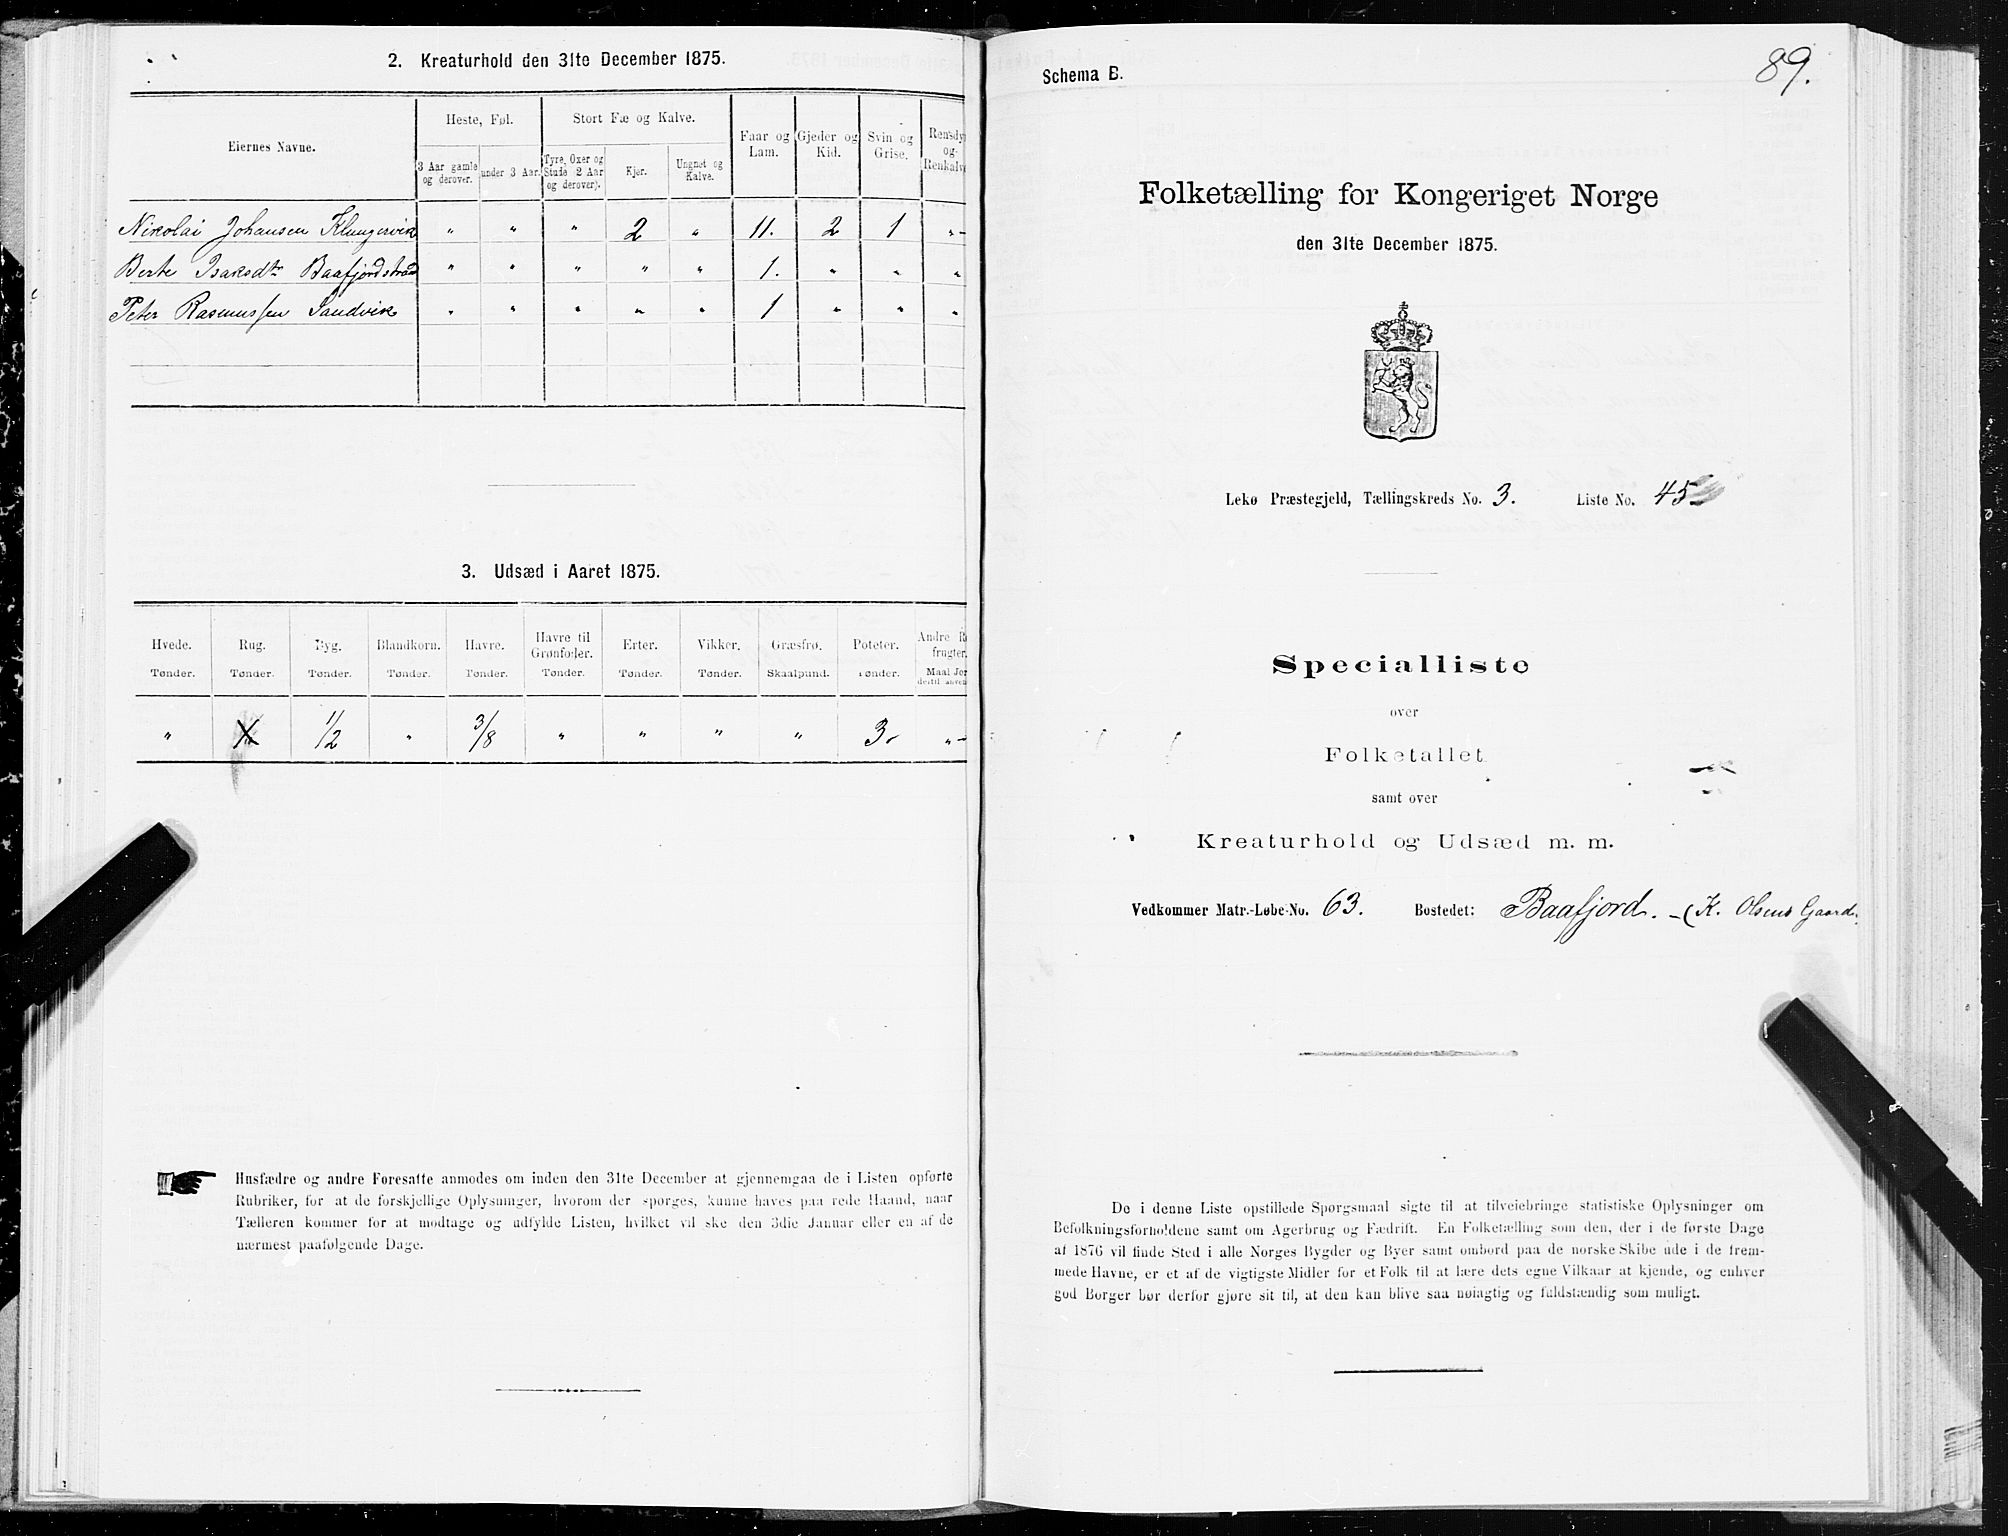 2. Kreaturhold den 31te December 1875.
Eiernes Navne.
Heste, Føl.
Stort Fæ og Kalve.
Faar og Lam.
Gjeder og Kid.
Svin og Grise.
Rensdy
og
Renkalv
3 Aar gamle og derover.
under 3 Aar.
Tyre, Oxer og Stude 2 Aar og derover).
Kjer.
Ungnøt og Kalve.
Nikolai Johansen Klungervik " " " 2 " 11. 2 1 "
Berte Isaksdtr Baafjordstrand " " " " " 1. " " "
Peter Rasmussen Sandvik " " " " " 1 " " "
3. Udsæd i Aaret 1875.
Hvede. Rug. Byg. Blandkorn. Havre. Havre til Grønfoder. Erter. Vikker. Græsfrø. Poteter. Andre R
frugter.
Tønder. Tønder. Tønder. Tønder. Tønder. Tønder. Tønder. Tønder. Skaalpund. Tønder. Maal Jor
dertil anven
" 1/2 " 3/8 " " " " 3 "
Husfædre og andre Foresatte anmodes om inden den 31te December at gjennemgaa de i Listen opførte
Rubriker, for at de forskjellige Oplysninger, hvorom der spørges, kunne haves paa rede Haand, naar
Tælleren kommer for at modtage og udfylde Listen, hvilket vil ske den 3die Januar eller en af de
nærmest paafølgende Dage.
Schema B.
89.
Folketælling for Kongeriget Norge
den 31te December 1875.
Lekø Præstegjeld, Tællingskreds No. 3. Liste No. 45
Specialliste
over
Folketallet
samt over
Kreaturhold og Udsæd m. m.
Vedkommer Matr.-Løbe-No. 63. Bostedet: Baafjord. - (K. Olsens Gaard.
De i denne Liste opstillede Spørgsmaal sigte til at tilveiebringe statistiske Oplysninger om
Befolkningsforholdene samt om Agerbrug og Fædrift. En Folketælling som den, der i de første Dage
af 1876 vil finde Sted i alle Norges Bygder og Byer samt ombord paa de norske Skibe ude i de frem-
mede Havne, er et af de vigtigste Midler for et Folk til at lære dets egne Vilkaar at kjende, og enhver
god Borger bør derfor gjøre sit til, at den kan blive saa nøiagtig og fuldstændig som muligt.